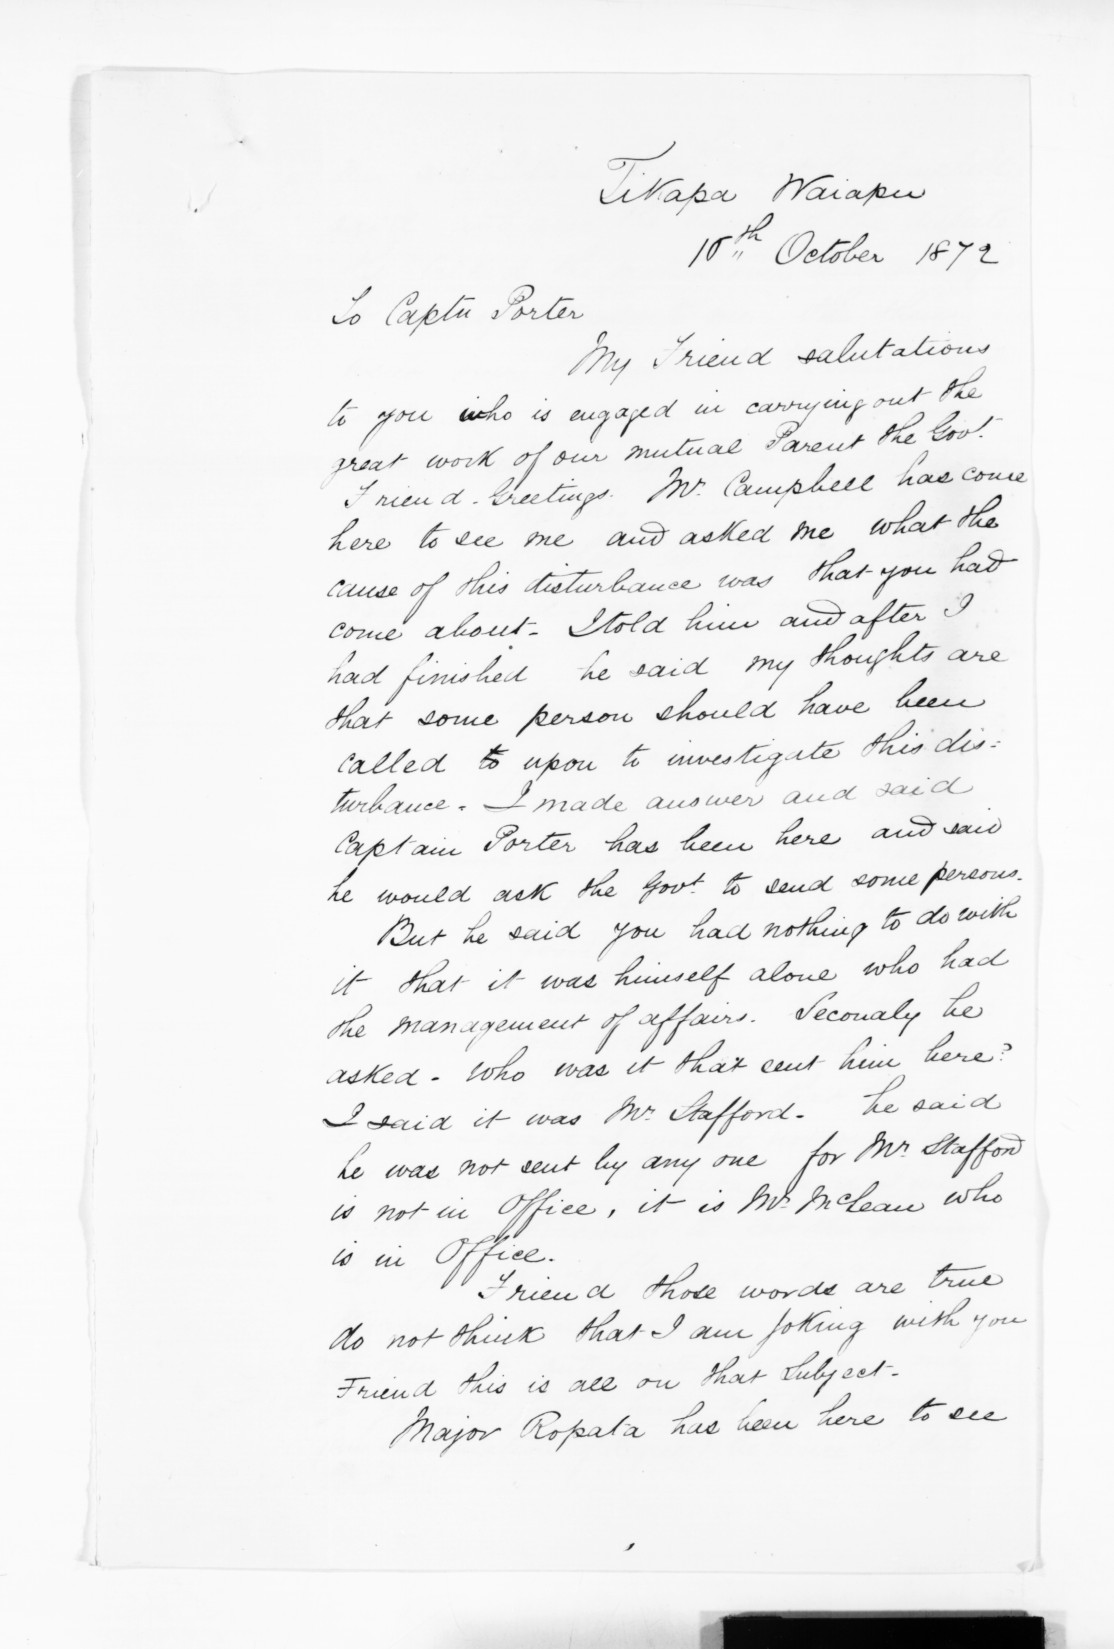 Tikapa Waiapu
10th October 1872
To Captn Porter
My Friend salutations
to you who is engaged in carrying out the
great work of our mutual Parent the Govt.
Friend. Greetings. Mr. Campbell has come
here to see me and asked me what the
cause of this disturbance was that you had
come about. I told him and after I
had finished he said my thoughts are
that some person should have been
called to upon to investigate this dis=
turbance. I made answer and said
Captain Porter has been here and said
he would ask the Govt. to send some persons.
But he said you had nothing to do with
it that it was himself alone who had
the management of affairs. Secondly he
asked - who was it that sent him here?
I said it was Mr. Stafford. he said
he was not sent by any one for Mr. Stafford
is not in Office, it is Mr. McLean who
is in Office.
Friend those words are true
do not think that I am joking with you
Friend this is all on that subject.
Major Ropata has been here to see